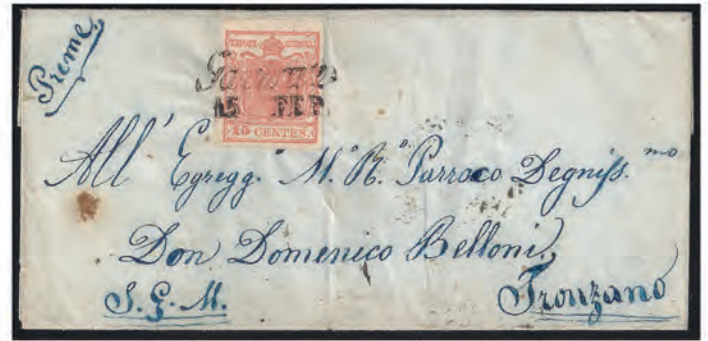 Preme
15 FEB.
15 CENTES.
All' Egregg. M.º R.º Parroco Degniss.mo
Don Domenico Belloni
S. G. M. Tronzano